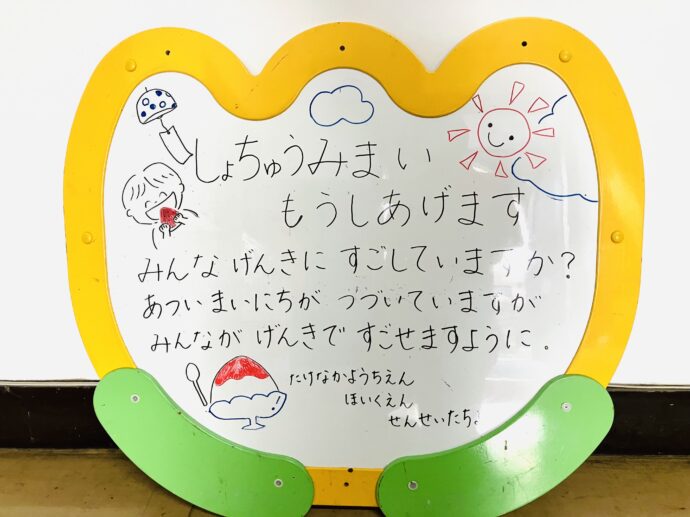 しょちゅうみまい
もうしあげます
みんな げんきに すごしていますか？
あつい まいにちが つづいていますが
みんなが げんきで すごせますように。
たけなかようちえん
ほいくえん
せんせいたち♪